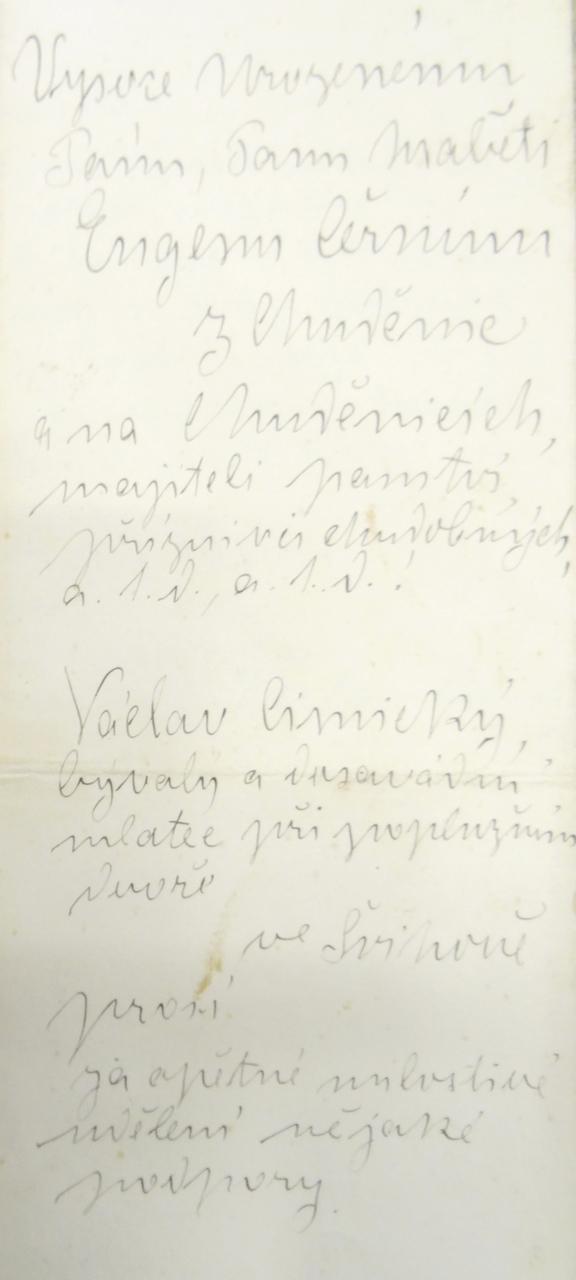 Vysoce Urozenému
Pánu, Panu hraběti
Eugenu Černínu
z Chuděnic
a na Chuděnicích,
majiteli panství,
příznivci chudobných,
a. t. d., a. t. d.!
Václav Cimický,
bývalý a dosavadní
mlatec při poplužním
dvoře
ve Švihově
prosí
za opětné milostivé
udělení nějaké
podpory.